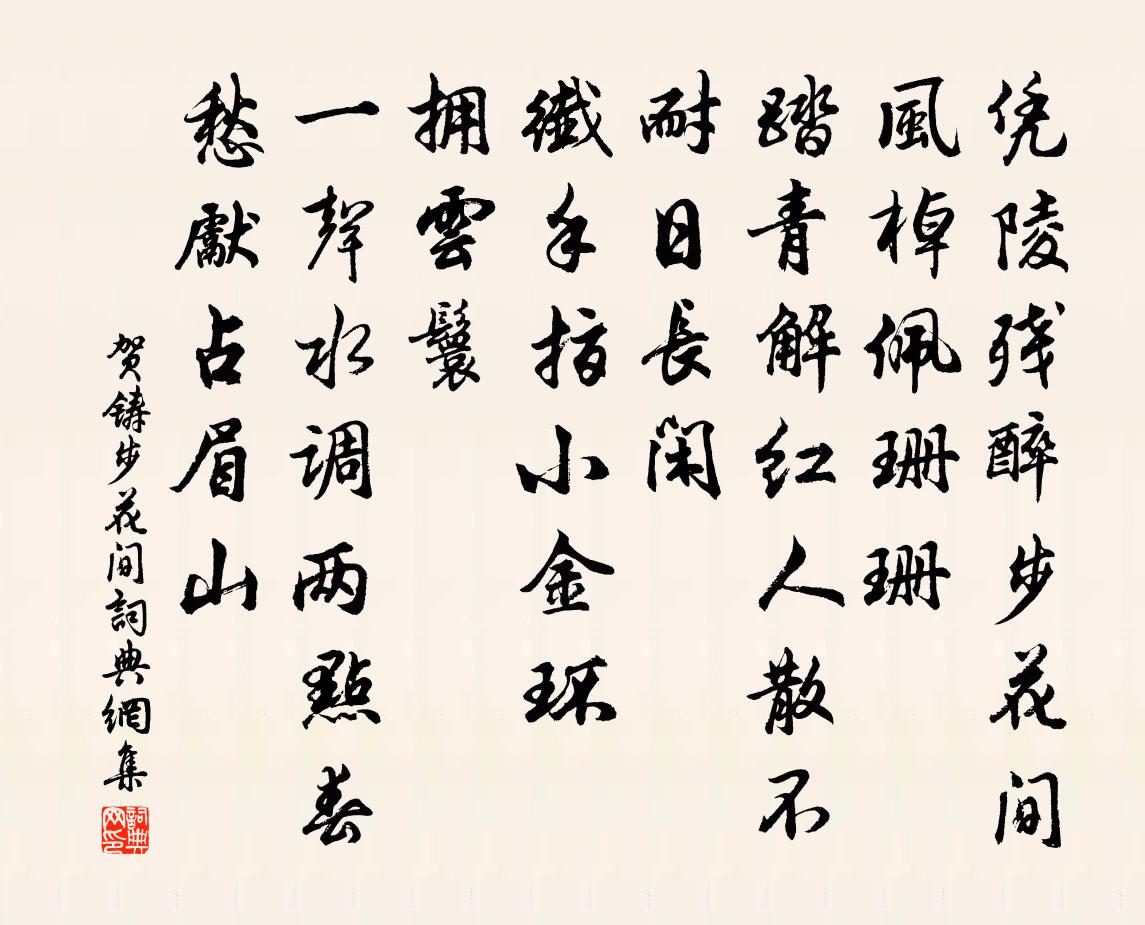 凭陵残醉步花间
風棹佩珊珊
踏青解红人散不
耐日長闲
纖手指小金环
拥雲鬟
一聲水调两點春
愁獻占眉山
贺鑄步花间詞典網集
詞典网印